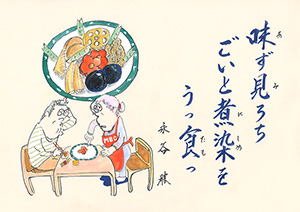 味ず見ろち
あ み
ごいと煮染を
にしめ
うっ食っ
たも
永谷